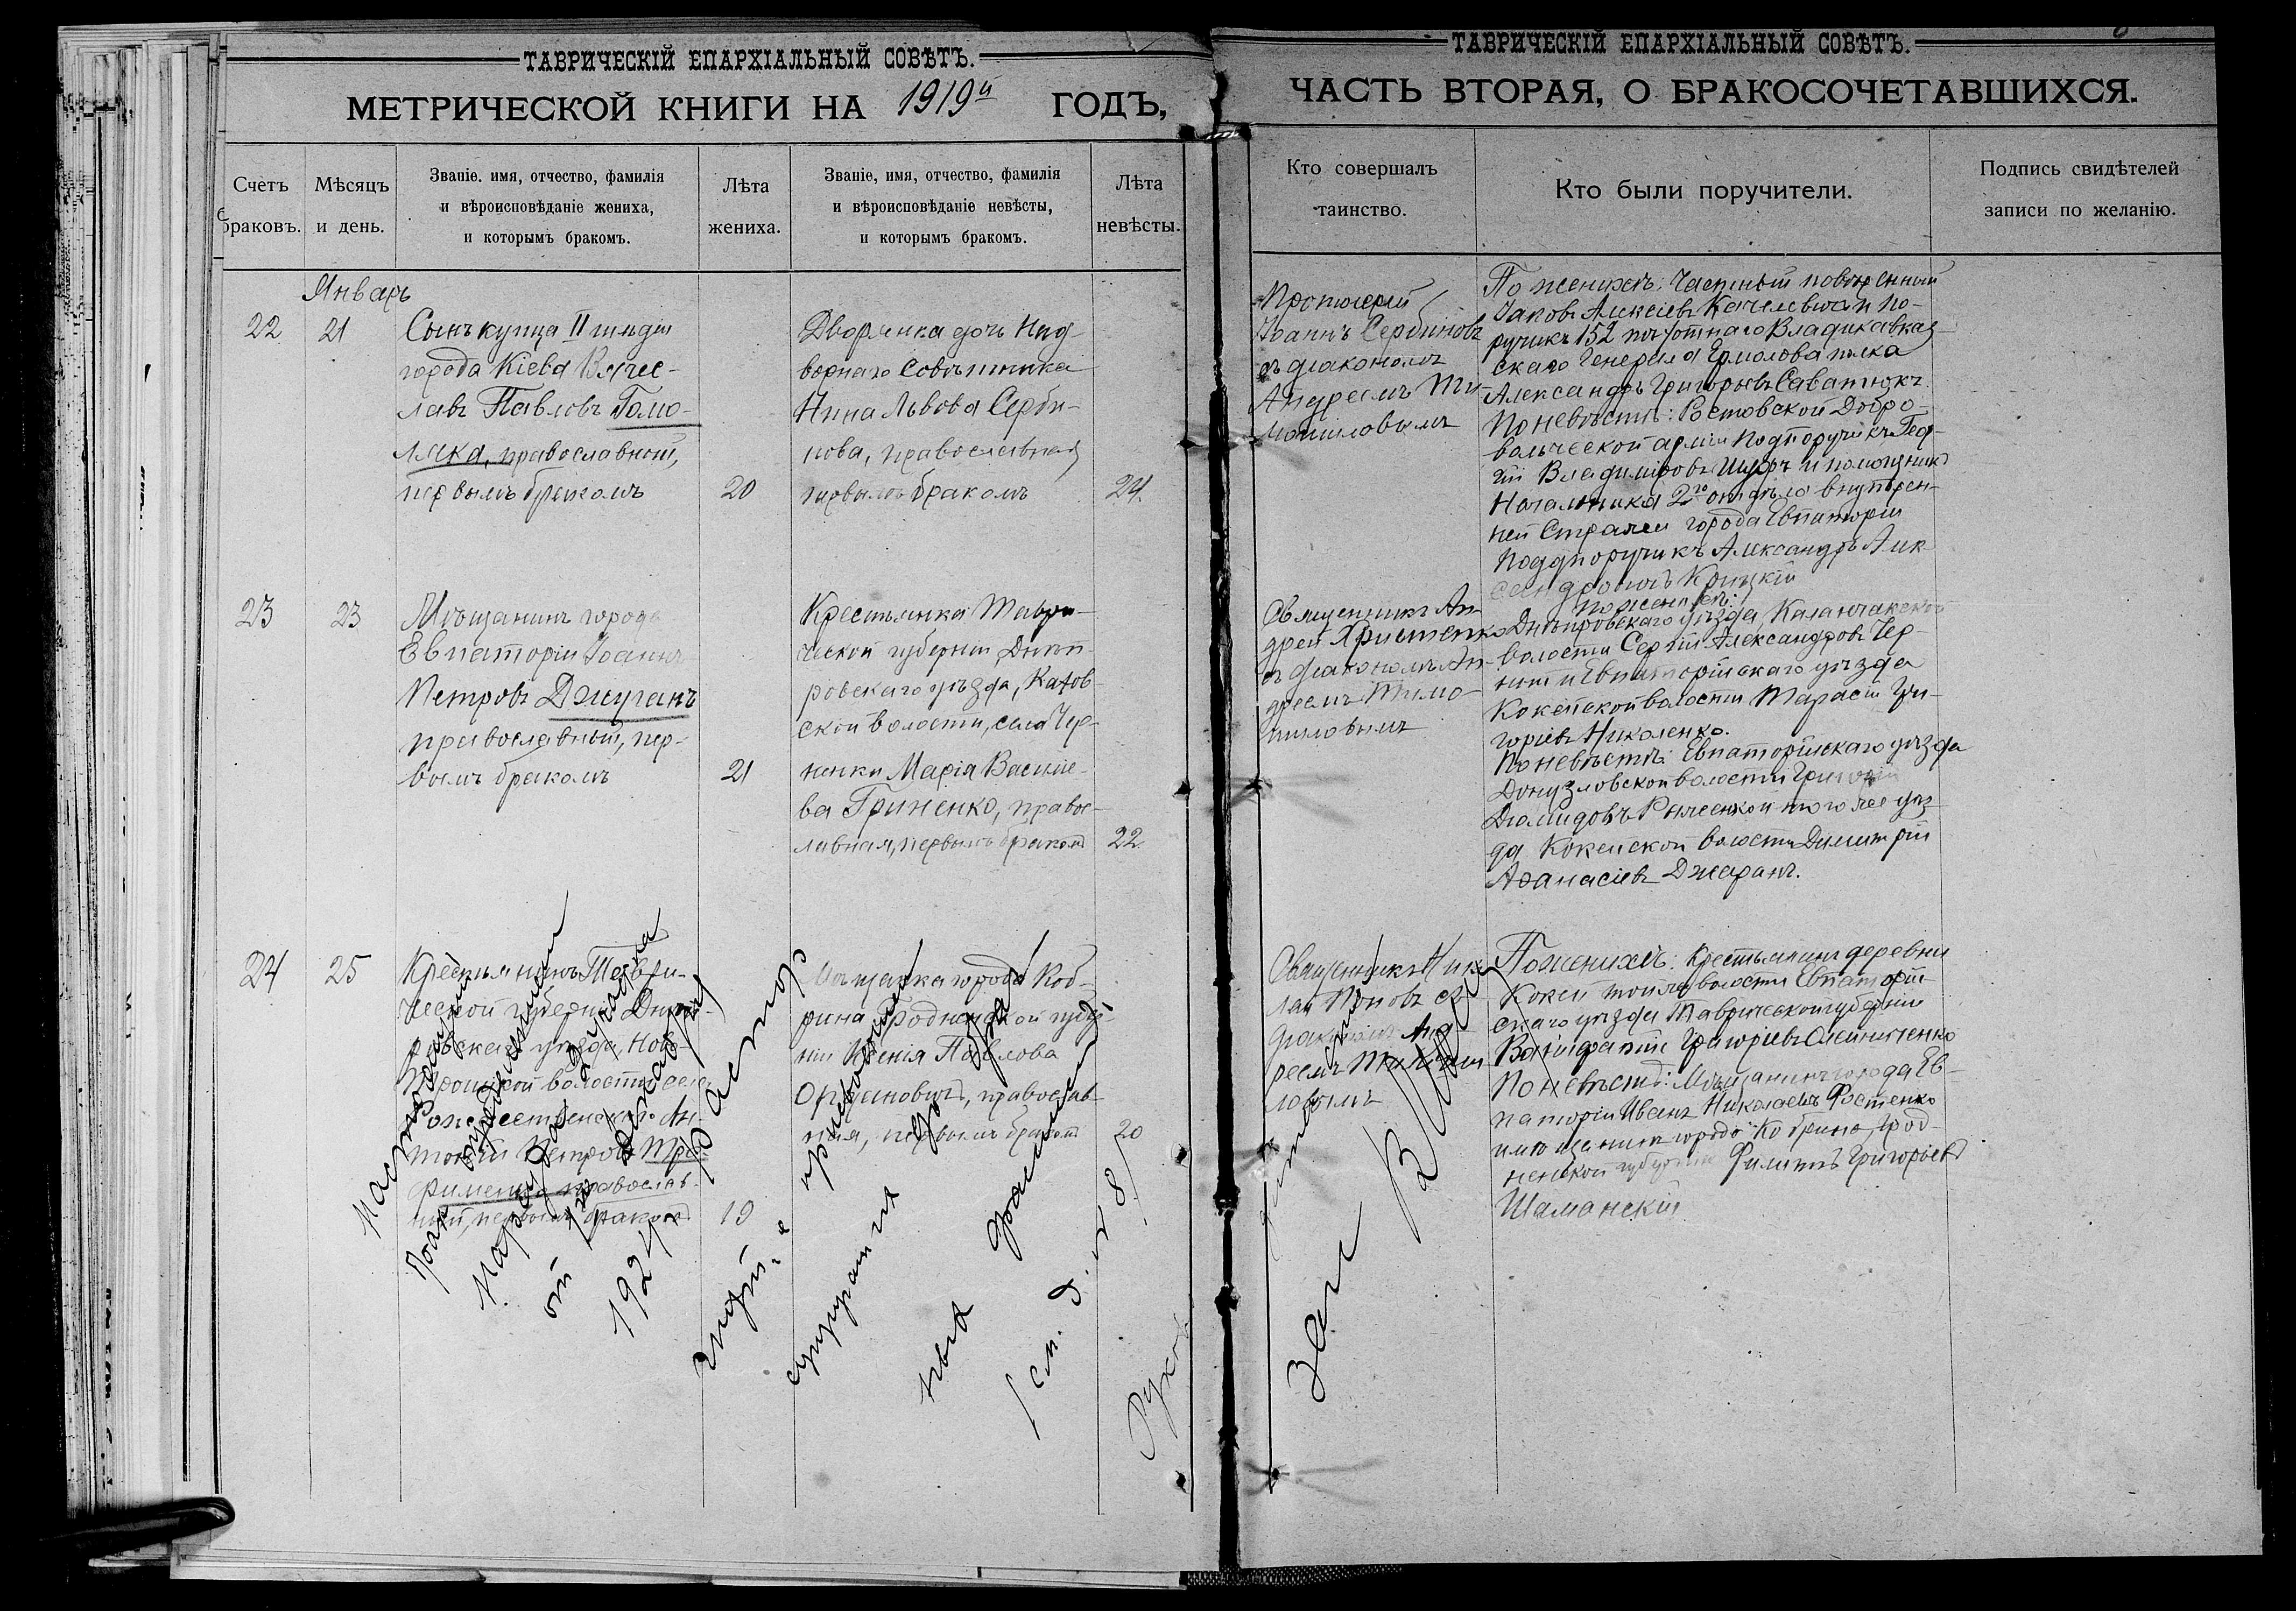 ТАВРИЧЕСКІЙ ЕПАРХІАЛЬНЫЙ СОВѢТЪ.
МЕТРИЧЕСКОЙ КНИГИ НА 1919й ГОДЪ,
Счетъ браковъ.
Мѣсяцъ и день.
Званіе, имя, отчество, фамилія
и вѣроисповѣданіе жениха,
и которымъ бракомъ.
Лѣта жениха.
Званіе, имя, отчество, фамилія
и вѣроисповѣданіе невѣсты,
и которымъ бракомъ.
Лѣта невѣсты.
ТАВРИЧЕСКІЙ ЕПАРХІАЛЬНЫЙ СОВѢТЪ.
ЧАСТЬ ВТОРАЯ, О БРАКОСОЧЕТАВШИХСЯ.
Кто совершалъ
таинство.
Кто были поручители.
Подпись свидѣтелей
записи по желанію.
Январь
22
21
Сынъ купца II гильдіи
города Кіева Вячес-
лавъ Павловъ Гомо-
ляка, православный,
первымъ бракомъ
20
Дворянка дочь Над-
ворнаго Совѣтника
Нина Львова Серби-
нова, православная
первымъ бракомъ
24
Протоіерей
Іоаннъ Сербиновъ
съ діакономъ
Андреемъ Ти-
мошловымъ
По женихѣ: Частный повѣренный
Іаковъ Алексіевъ Качелевичъ и по-
ручикъ 152 пѣхотнаго Владикавказ
скаго Генерала Ермолова полка
Александръ Григорьевъ Саватюкъ.
По невѣстѣ: Ростовской Добро-
вольческой арміи Подпоручикъ Геор-
гій Владиміровъ и помощникъ
Начальника 2го отдѣла внутрен-
ней Стражи города Евпаторіи
Подпоручикъ Александръ Алек
сандровъ Крицкій
23
23
Мѣщанинъ города
Евпаторіи Іоаннъ
Петровъ Джуганъ
православный, пер-
вымъ бракомъ
21
Крестьянка Таври-
ческой губерніи, Днѣп-
ровскаго уѣзда, Кахов-
ской волости, села Чер-
ненки Марія Василіе-
ва Гриненко, правос-
лавная, первымъ бракомъ
22
Священникъ Ан-
дрей Христенко
съ діакономъ Ан-
дреемъ Тимо-
шиловымъ
По женихѣ:
Днѣпровскаго уѣзда, Каланчакской
волости Сергій Александровъ Чер-
ный и Евпаторійскаго уѣзда
Кокейской волости Тарасій Гри-
горіевъ Николенко.
По невѣстѣ: Евпаторійскаго уѣзда
Донузловской волости Григорій
Діомидовъ и того же уѣз-
да Кокейской волости Димитрій
Аѳанасіевъ Джеранъ.
24
25
Крестьянинъ Таври-
ческой губерніи Днѣп-
ровскаго уѣзда, Ново-
Троицкой волости села
Рожественскаго Ан-
тоній Петровъ Тро-
фименко православ-
ный, первымъ бракомъ
19
Мѣщанка города Коб-
рина Гродненской губер-
ніи Ксенія Павлова
православ-
ная, первымъ бракомъ
20
Священникъ Нико
лай Поповъ съ
діакономъ Анд-
реемъ
ловымъ
По женихѣ: Крестьянинъ деревни
Кокей той же волости Евпаторій-
скаго уѣзда Таврической губерніи
Вонифатій Григоріевъ Олейниченко
По невѣстѣ: Мѣщанинъ города Ев-
паторіи Иванъ Николаевъ Фостенко
и мѣщанинъ города Кобрина, Грод-
ненской губерніи Филиппъ Григорьевъ
Шаманскій
Настоящий брак
расторг
Нар
от
1924 г
фамилии
/см. д. № 8/
Зав